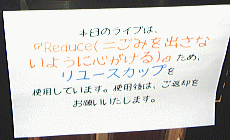 本日のライブは、
『Reduce(=ごみを出さな
いように心がける)』ため、
リユースカップを
使用しています。使用後は、ご返却を
お願いいたします。